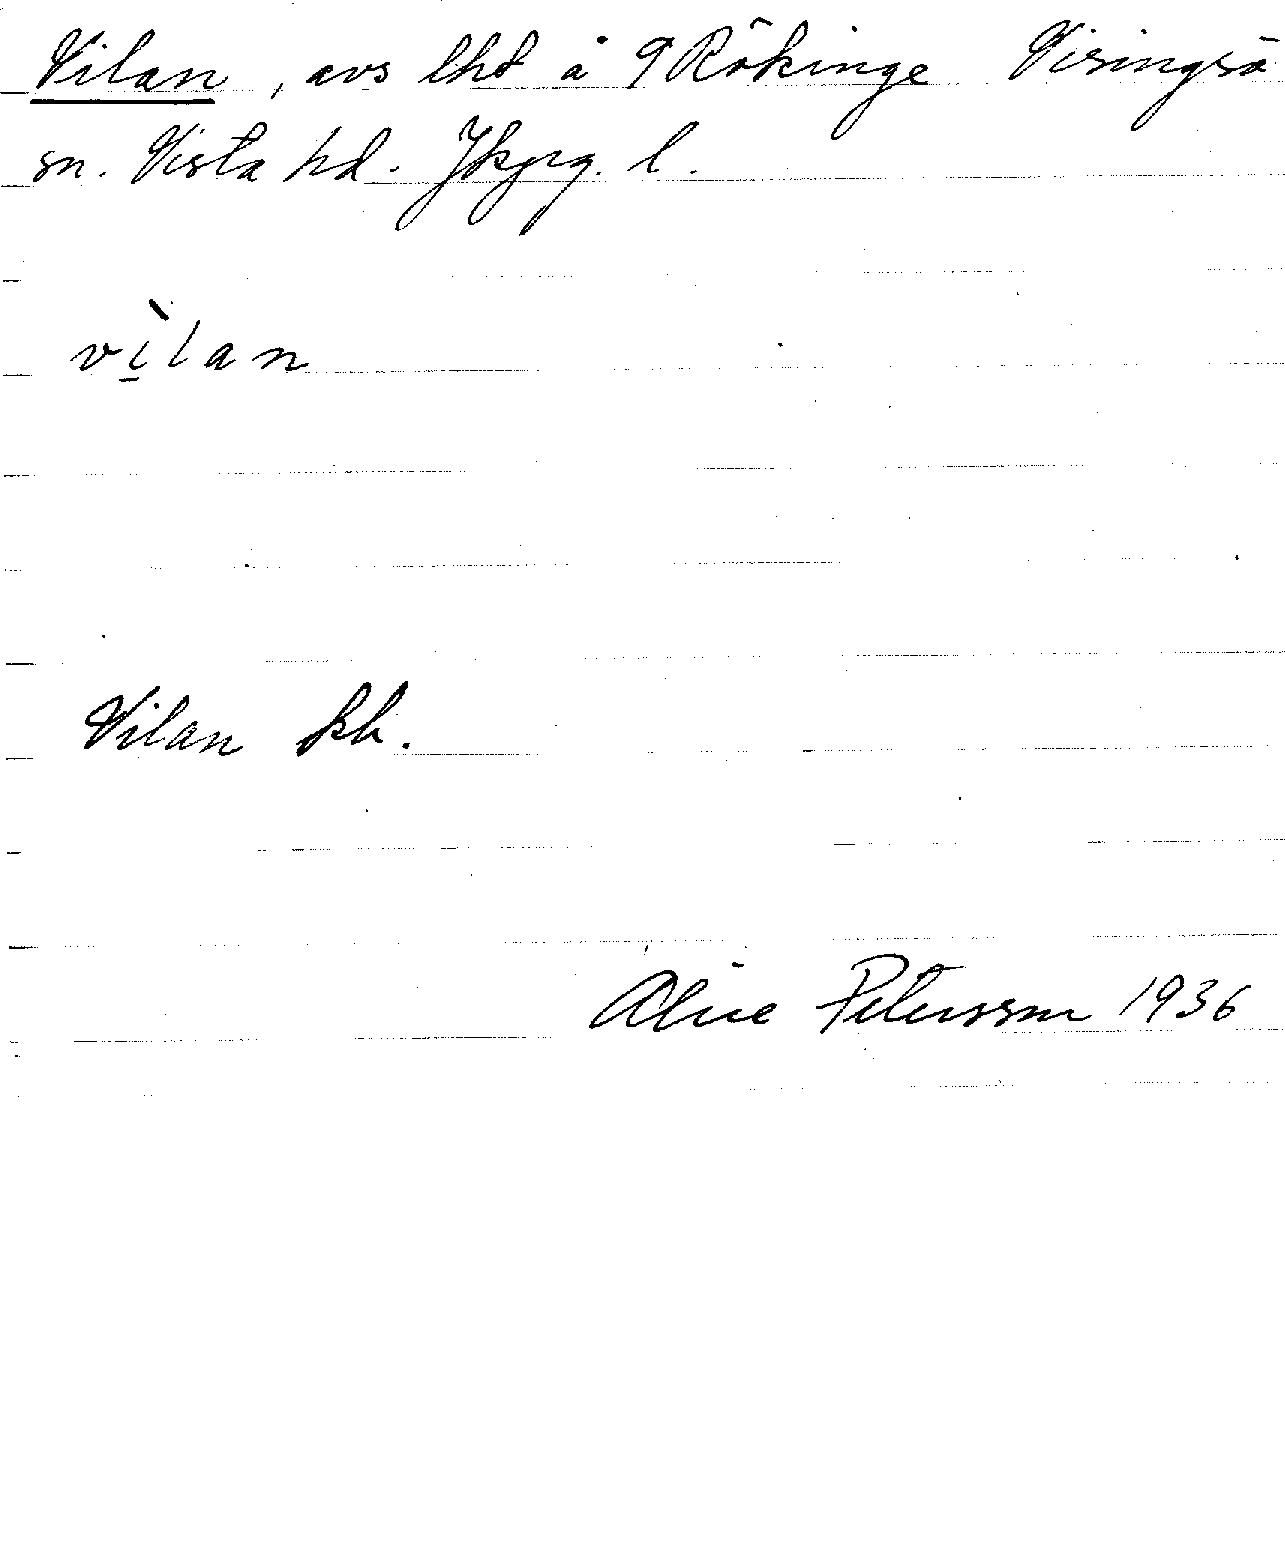 Vilan, avs lht å 9 Rökinge Visingsö
sn. Vista hd. Jkpg. l.
vìlan
Vilan kb.
Alice Petersson 1936